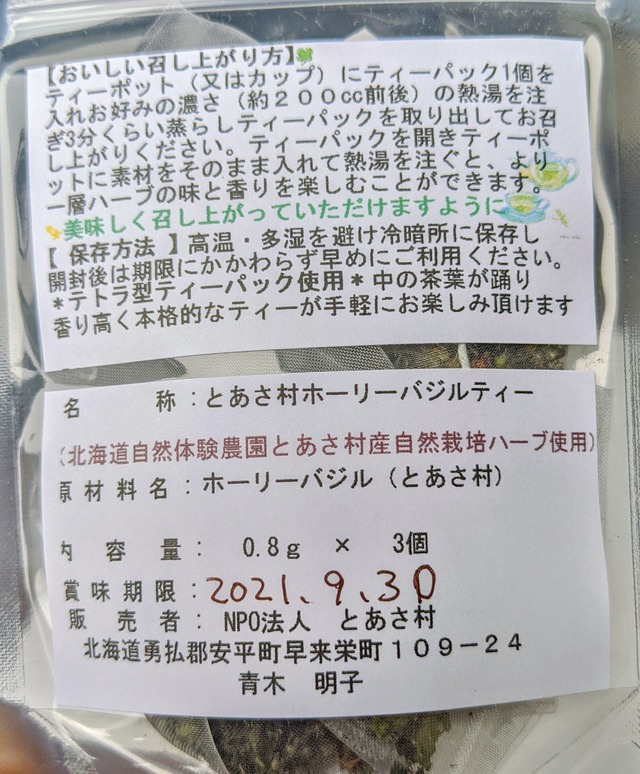 【おいしい召し上がり方】
ティーポット（又はカップ）にティーパック1個を
入れお好みの濃さ（約２００cc前後）の熱湯を注
ぎ3分くらい蒸らしティーパックを取り出してお召
し上がりください。ティーパックを開きティーポ
ットに素材をそのまま入れて熱湯を注ぐと、より
一層ハーブの味と香りを楽しむことができます。
美味しく召し上がっていただけますように
【 保存方法 】高温・多湿を避け冷暗所に保存し
開封後は期限にかかわらず早めにご利用ください。
＊テトラ型ティーパック使用＊中の茶葉が踊り
香り高く本格的なティーが手軽にお楽しみ頂けます
名　　　称：とあさ村ホーリーバジルティー
（北海道自然体験農園とあさ村産自然栽培ハーブ使用）
原材料名：ホーリーバジル（とあさ村）
内　容　量：　0.8g　×　3個
賞味期限：2021.9.30
販　売　者：　NPO法人　とあさ村
北海道勇払郡安平町早来栄町１０９－２４
青木　明子